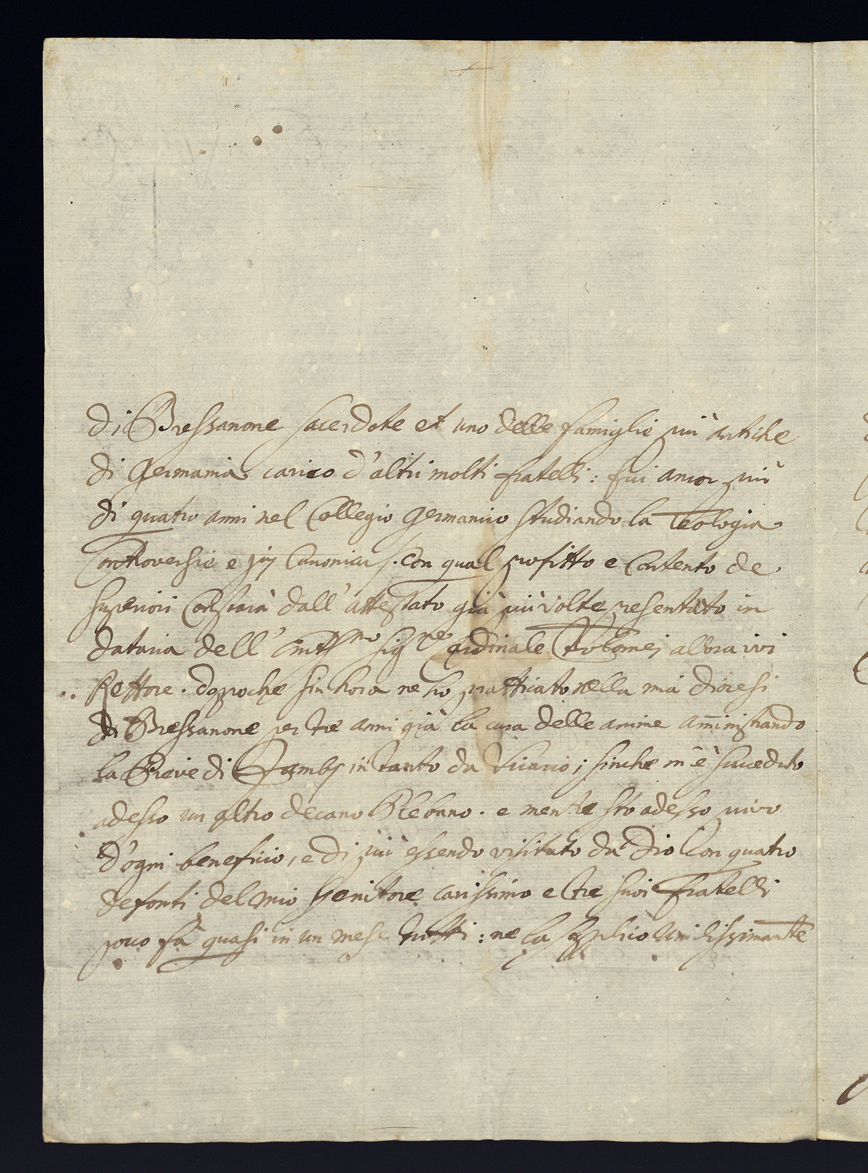 di Bressanone sacerdote et uno delle famiglie più antiche
di Germania carico d'altri molti fratelli: fui ancor più
di quatro anni nel Collegio Germanico studiando la Teologia
Controversie e jus Canonicum. con qual profitto e contento de
superiori constarà dall'attestato già più volte presentato in
dataria dell' Emtt.mo sig.re Cardinale Tolomei allora ivi
Rettore. dopoche sin hora ne ho pratticato nella mia diocesi
di Bressanone per tre anni già la cura delle anime aministrando
la Pieve di in tanto da Vicario; sinche m'è succeduto
adesso un altro decano Plebano. e mentre stò adesso privo
d'ogni beneficio, e di più essendo visitato da Dio con quatro
defonti del mio genitore carissimo e tre suoi fratelli
poco fà quasi in un mese tutti: ne la supplico umilissimante